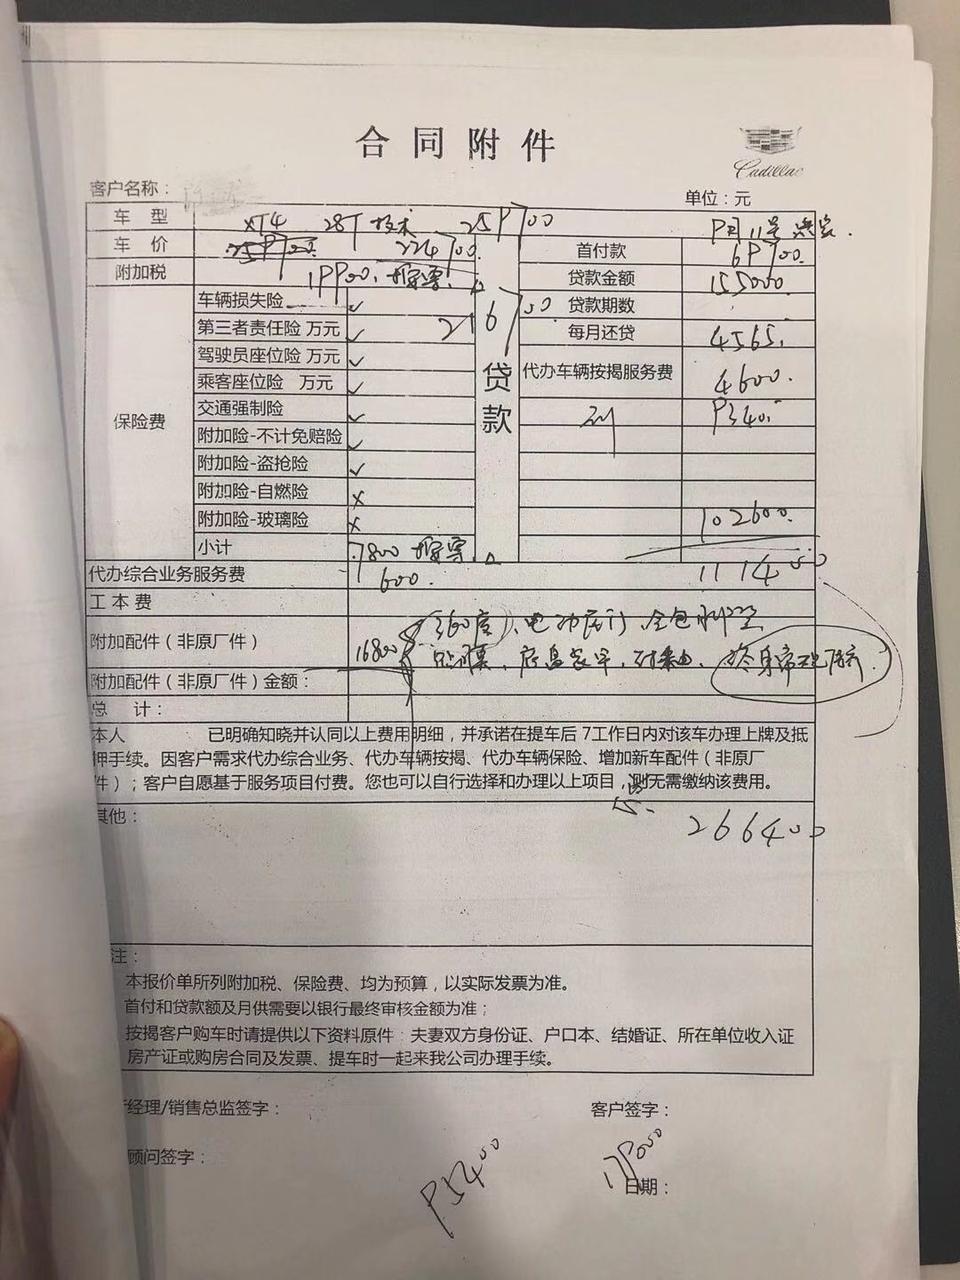 合同附件
Cadillac
客户名称：
单位：元
车 型 XT4 28T 技术 259700
车 价 224700
附加税 19900.
保险费
车辆损失险 ✓
第三者责任险 万元 ✓
驾驶员座位险 万元 ✓
乘客座位险 万元 ✓
交通强制险 ✓
附加险-不计免赔险 ✓
附加险-盗抢险 ✓
附加险-自燃险 ×
附加险-玻璃险 ×
小计 7800
216700
贷款
首付款 69700.
贷款金额 155000
贷款期数
每月还贷 4565.
代办车辆按揭服务费 4600.
9340.
102600.
111400
代办综合业务服务费 600.
工 本 费
附加配件（非原厂件） 16800 360度、电动尾门、全包
附加配件（非原厂件）金额：
总 计：
本人 已明确知晓并认同以上费用明细，并承诺在提车后 7工作日内对该车办理上牌及抵
押手续。因客户需求代办综合业务、代办车辆按揭、代办车辆保险、增加新车配件（非原厂
件）；客户自愿基于服务项目付费。您也可以自行选择和办理以上项目，则无需缴纳该费用。
其他：
266400
注：
本报价单所列附加税、保险费、均为预算，以实际发票为准。
首付和贷款额及月供需要以银行最终审核金额为准；
按揭客户购车时请提供以下资料原件：夫妻双方身份证、户口本、结婚证、所在单位收入证
房产证或购房合同及发票、提车时一起来我公司办理手续。
经理/销售总监签字：
客户签字：
顾问签字：
95400
179000
日期：